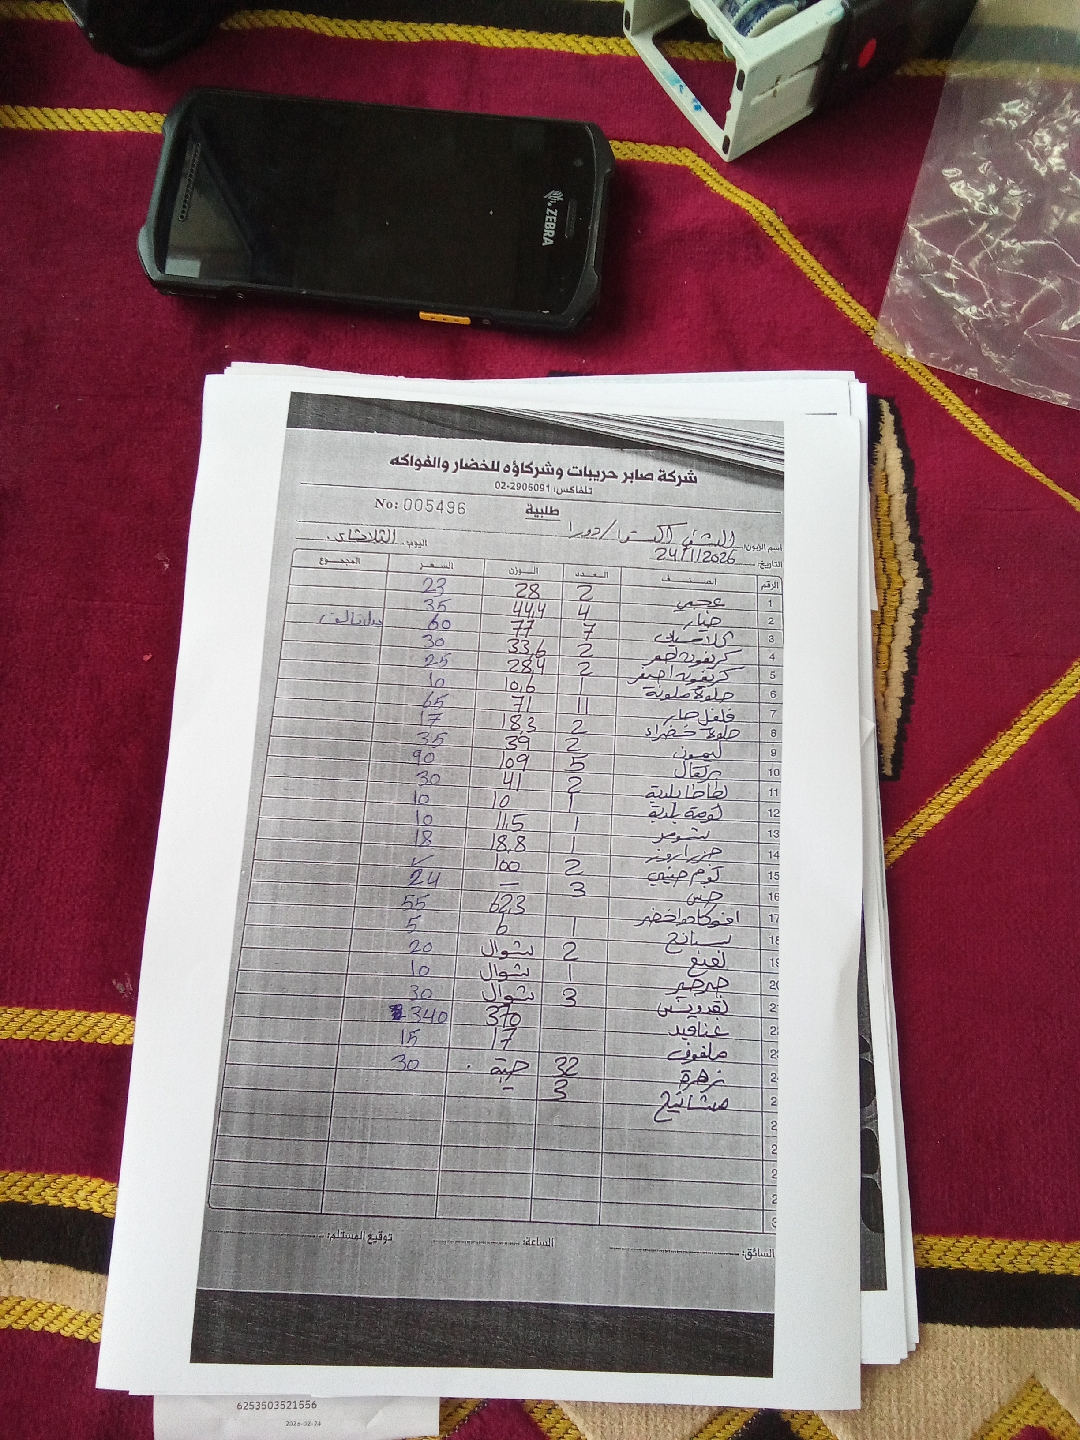 ZEBRA
شركة صابر حريبات وشركاؤه للخضار والفواكه
تلفاكس: 02-2905091
طلبية
No: 005496
اسم الزبون: دورا
اليوم: الثلاثاء
التاريخ: 24/1/2026
الرقم الصنف العدد الوزن السعر المجموع
1 عجمي 2 28 23
2 خيار 4 44,4 35
3 7 77 60
4 2 33,6 30
5 2 28,4 25
6 حلوة ملونة 1 10,6 10
7 فلفل حار 11 71 65
8 حلوة خضراء 2 18,3 17
9 ليمون 2 39 35
10 برتقال 5 109 90
11 بطاطا بلدية 2 41 30
12 ثومة بلدية 1 10 10
13 شومر 1 11,5 10
14 1 18,8 18
15 ثوم صيني 2 100 ✓
16 خس 3 — 24
17 افوكادو اخضر 62,3 55
18 سبانخ 1 6 5
19 نعنع 2 شوال 20
20 جرجير 1 شوال 10
2 بقدونس 3 شوال 30
2 عناقيد 370 340
2 ملفوف 17 15
2 زهرة 32 حبة 30
2 3 —
2
2
2
2
3
السائق: الساعة: توقيع المستلم:
6253503521556
2026-02-24